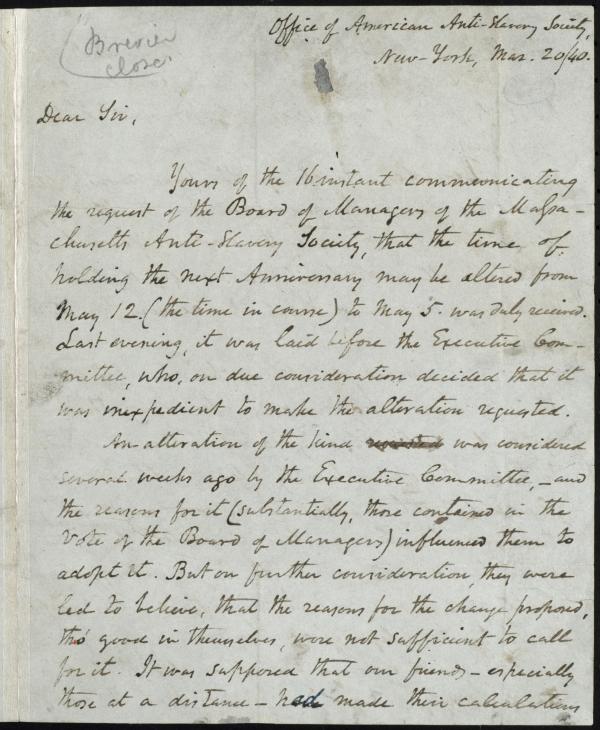 Brevier
close.
Office of American Anti-Slavery Society,
New-York, Mar. 20/40.
Dear Sir,
Yours of the 16 instant communicating
the request of the Board of Managers of the Massa-
chusetts Anti-Slavery Society, that the time of
holding the next Anniversary may be altered from
May 12. (the time in course) to May 5. was duly received.
Last evening, it was laid before the Executive Com-
mittee, who, on due consideration decided that it
was inexpedient to make the alteration requested.
An alteration of the kind requested was considered
several weeks ago by the Executive Committee, - and
the reasons for it (substantially, those contained in the
vote of the Board of Managers) influenced them to
adopt it. But on further consideration, they were
led to believe, that the reasons for the change proposed,
tho' good in themselves, were not sufficient to call
for it. It was supposed that our friends - especially
those at a distance - had made their calculations